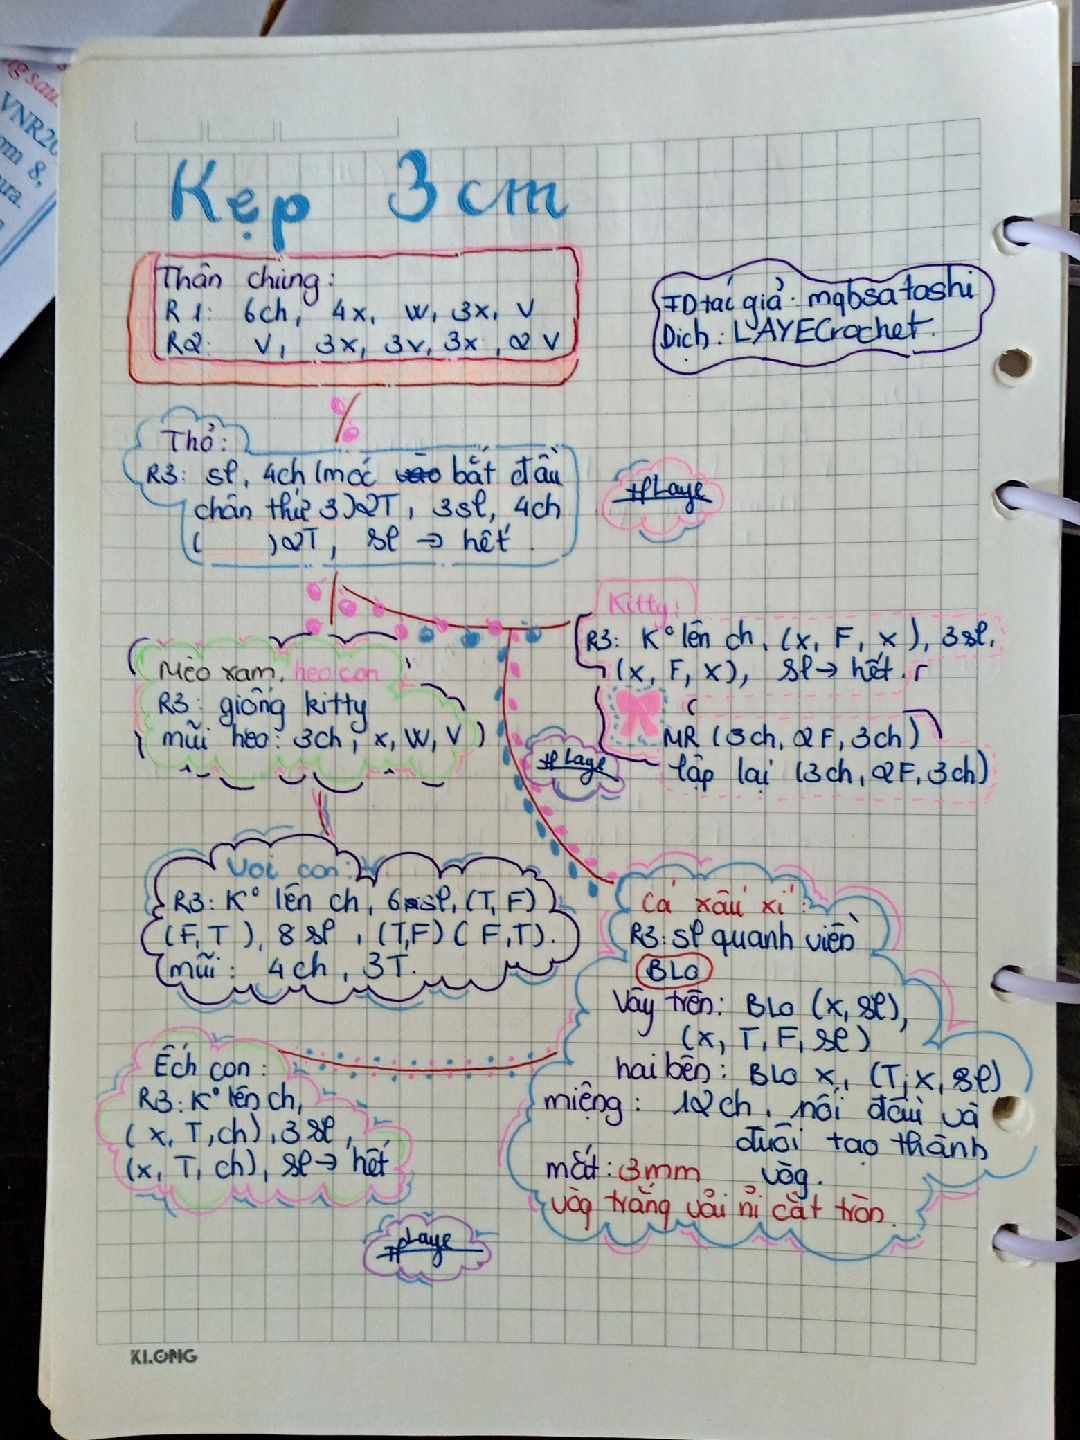 Kẹp 3cm
Thân chung:
R1: 6ch, 4x, W, 3x, V
R2: V, 3x, 3v, 3x, 2V
ID tác giả: mqbsatoshi
Dịch: LAYECrochet.
Thỏ:
R3: sl, 4ch (móc bắt đầu
chân thứ 3) 2T, 3sl, 4ch
( ) 2T, sl → hết.
#Laye
Kitty:
R3: K° lên ch, (x, F, x), 3sl,
(x, F, x), sl → hết.
MR (3ch, 2F, 3ch)
lặp lại (3ch, 2F, 3ch)
Mèo xám, heo con
R3: giống kitty
mũi heo: 3ch, x, W, V)
#Laye
Voi con:
R3: K° lên ch, 6sl, (T, F)
(F, T), 8sl, (T,F) (F,T).
mũi: 4ch, 3T.
Cá xấu xí:
R3: sl quanh viền
BLO
Vây trên: BLO (x, sl),
(x, T, F, sl)
hai bên: BLO x, (T, x, sl)
miệng: 12ch, nối đầu và
đuôi tạo thành
vòg.
mắt: 3mm
vòg trắng vải nỉ cắt tròn.
Ếch con:
R3: K° lên ch,
(x, T, ch), 3sl,
(x, T, ch), sl → hết
#Laye
KLONG
VNR20
8,